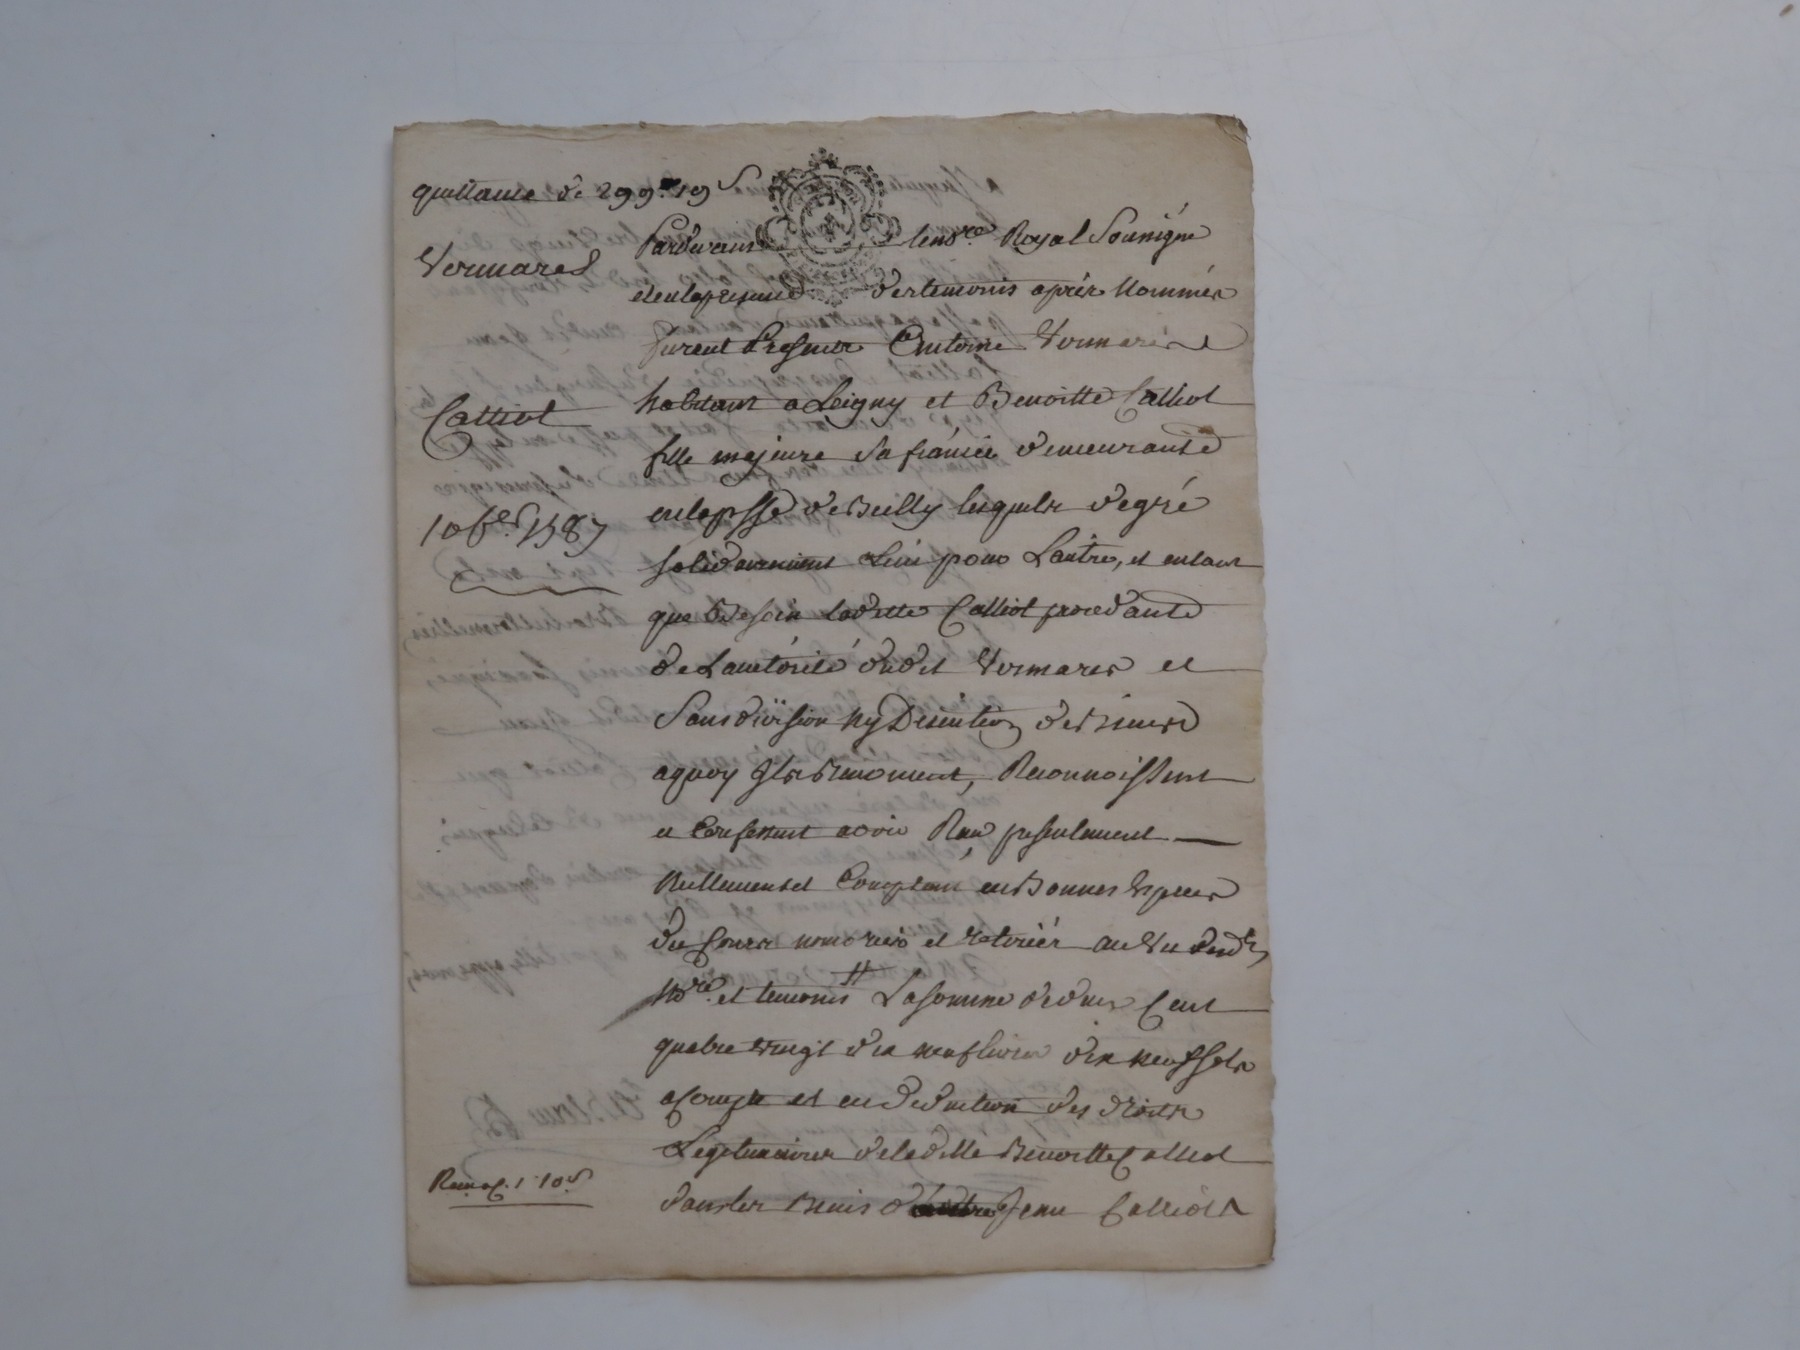 quittance de 299ᵗᵗ 19ˢ
Vermares
Calliot
10 bᵉʳ 1787
Pardevant le noʳᵉ Royal Sousigné
et en la presance des temoins apres Nommés
furent presents Antoine Vermares
habitant a Loigny et Benoitte Calliot
fille majeure sa fiancée demeurante
en la psse de Beilly lesquels de gré
solidairement L'un pour L'autre, et entant
que Besoin ladette Calliot procedante
de L'autórité dudit Vermares et
Sans division ny Discution de Biens
aquoy Ils Renoncent, Reconnoissent
et Confessent avoir Reçu presentement
Reellement et Comptant en Bonnes Especes
du Cours nombrées et retirées au Vu dudᵗ
Noʳᵉ et temoins La somme de deux Cent
quatre vingt dix neuf livres dix neuf sols
a Compte et en deduction des droits
Legitimaires de ladille Benoitte Calliot
dans les Biens de Jean Calliot
1 10ˢ